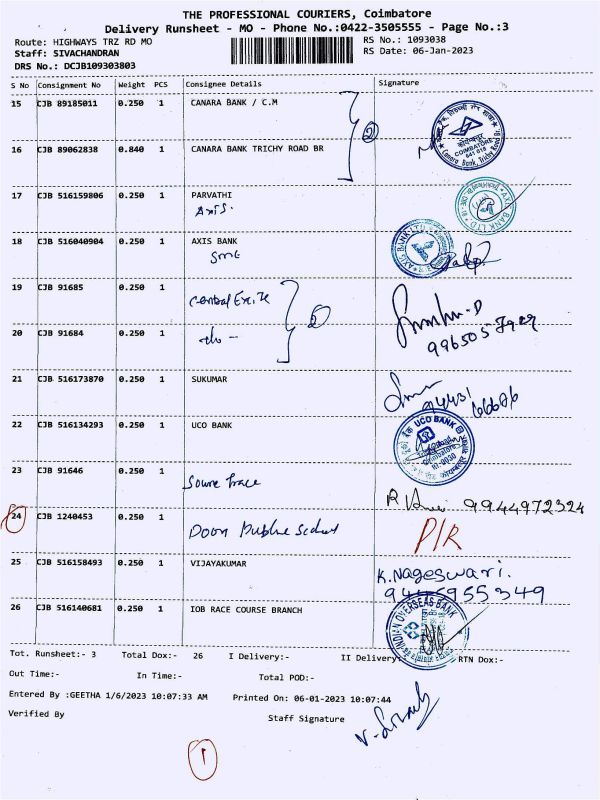 THE PROFESSIONAL COURIERS, Coimbatore
Delivery Runsheet - MO - Phone No.:0422-3505555 - Page No.:3
Route: HIGHWAYS TRZ RD MO RS No.: 1093038
Staff: SIVACHANDRAN RS Date: 06-Jan-2023
DRS No.: DCJB109303803
S No Consignment No Weight PCS Consignee Details Signature
15 CJB 89185011 0.250 1 CANARA BANK / C.M
16 CJB 89062838 0.840 1 CANARA BANK TRICHY ROAD BR
COIMBATORE
641 018
Canara Bank, Trichy Road
17 CJB 516159806 0.250 1 PARVATHI
Axis.
AXIS BANK LTD
18 CJB 516040904 0.250 1 AXIS BANK
SME
AXIS BANK LTD
19 CJB 91685 0.250 1 Central Excise
20 CJB 91684 0.250 1 -do-
21 CJB 516173870 0.250 1 SUKUMAR
22 CJB 516134293 0.250 1 UCO BANK
UCO BANK
23 CJB 91646 0.250 1
R 9944972324
24 CJB 1240453 0.250 1 Doon Public School P/R
25 CJB 516158493 0.250 1 VIJAYAKUMAR
K.Nageswari.
26 CJB 516140681 0.250 1 IOB RACE COURSE BRANCH
INDIAN OVERSEAS BANK
Tot. Runsheet:- 3 Total Dox:- 26 I Delivery:- II Delivery: RTN Dox:-
Out Time:- In Time:- Total POD:-
Entered By :GEETHA 1/6/2023 10:07:33 AM Printed On: 06-01-2023 10:07:44
Verified By Staff Signature
1